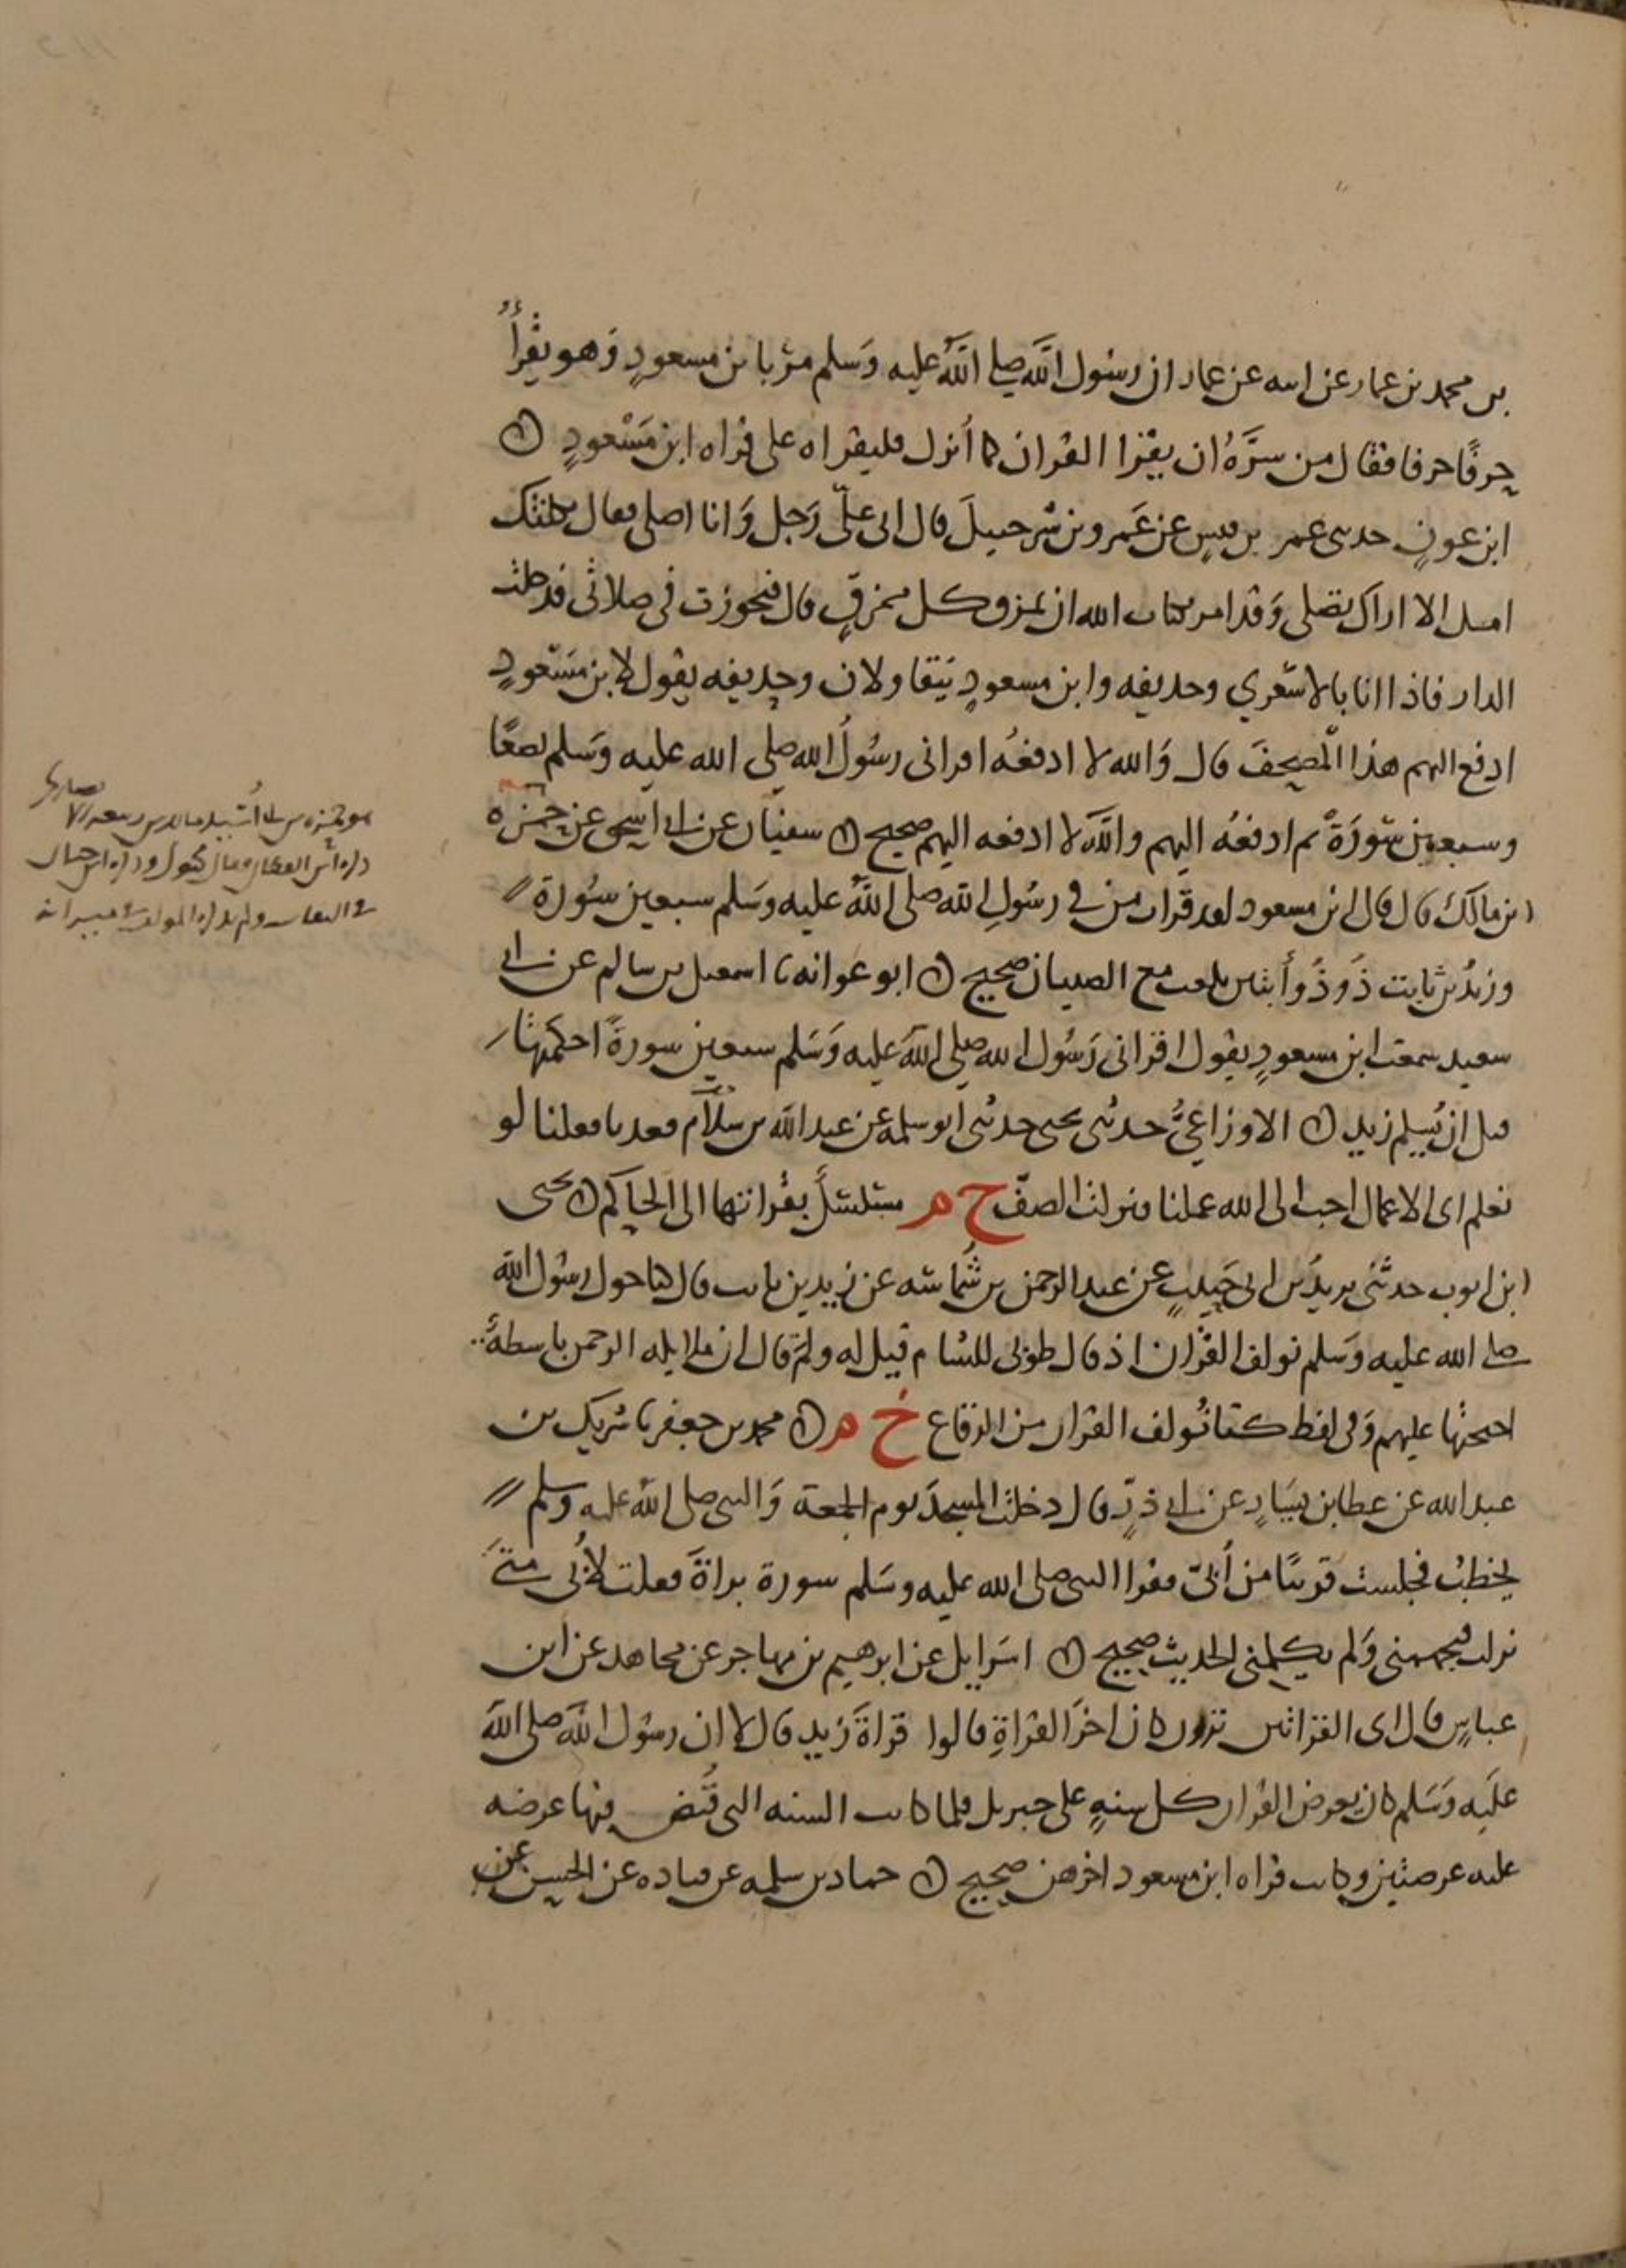 بن محمد بن عمار عن ابيه عن عمار ان رسول الله صلى الله عليه وسلم مر بابن مسعودٍ وهو يقرأُ
حرفًا حرفا فقال من سرَّهُ ان يقرا القران كما أنزل فليقراه على قراه ابن مَسْعودٍ
ابن عونٍ حدثني عمر بن قيسٍ عن عَمرو بن شرحبيلَ قال اتى عليّ رَجل وَانا اصلي فقال ثكلتك
امك الا اراك تصلي وَقد امر بكتاب الله ان يمزق كل ممزقٍ قال فتجوزت في صلاتي فدخلت
الدار فاذا انا بالاشعري وحذيفه وابن مسعودٍ يَتقاولان وحذيفه يقول لابن مسْعودٍ
ادفع اليهم هذا المصحفَ قال وَالله لا ادفعُه اقراني رسُولُ الله صلى الله عليه وسَلم بضعًا
وسبعين سُورَةً ثم ادفعُه اليهم والله لا ادفعه اليهم صحيح سفيان عن ابي اسحق عن حمزه
ابن مالك قال قال ابن مسعود لقد قرات من في رسُولِ الله صلى اللهُ عليه وسَلم سبعين سُورة
وزيدُ بن ثابت ذو ذُوأبتين يلعب مع الصبيان صحيح ابو عوانه نا اسمعيل بن سالم عن ابي
سعيد سمعت ابن مسعودٍ يقول اقراني رَسُول الله صلى الله عليه وَسَلم سبعين سورةً احكمتها
قبل ان يُسلم زيد الاوزاعيُّ حدثني يحيى حدثني ابو سلمة عن عبد الله بن سلام قعدنا فقلنا لو
نعلم اى الاعمال احب الى الله عملنا فنزلت الصفّ خ م مسَلسَلٌ بقراتها الى الحاكم يحيى
ابن ايوب حدثني يزيدُ بن ابي حَبيبٍ عن عبد الرحمن بن شُماسَه عن زيد بن ثابت قال كنا حول رسُول الله
صلى الله عليه وسَلم نولف القُران اذ قال طوبى للشام قيل له ولمَ قال ان ملايكه الرحمن باسطةٌ
اجنحتها عليهم وَفي لفظ كنا نُولف القران من الرقاع خ م محمد بن جعفر نا شريك بن
عبد الله عن عطا بن يسَارٍ عن ابي ذرٍّ قال دخلت المسجدَ يوم الجمعة وَالنبي صلى الله عليه وسلم
يخطبُ فجلست قريبًا من أُبيّ فقرا النبي صلى الله عليه وسَلم سورة براةَ فقلت لأُبي متَى
نزلت فتجهمني وَلم يكلمني الحديث صحيح اسَرايل عن ابرهيم بن مهاجر عن مجاهد عن ابن
عباسٍ قال اى القراتين ترون كان اخرَ القراةِ قالوا قراةَ زيد قال لا ان رسول الله صلى الله
عليه وَسَلم كان يعرض القران كل سنهٍ على جبريل فلما كانت السنه التي قُبض فيها عرضه
عليه عرضتين وكانت قراه ابن مسعود اخرهن صحيح حماد بن سلمه عن قتاده عن الحسن عن
هو حمزه بن ابي أُسَيد مالك بن ربيعه الانصاري
ذكره ابن القطان وقال مجهول وذكره ابن حبان
في الثقات ولم يذكره المولف في ميزانه